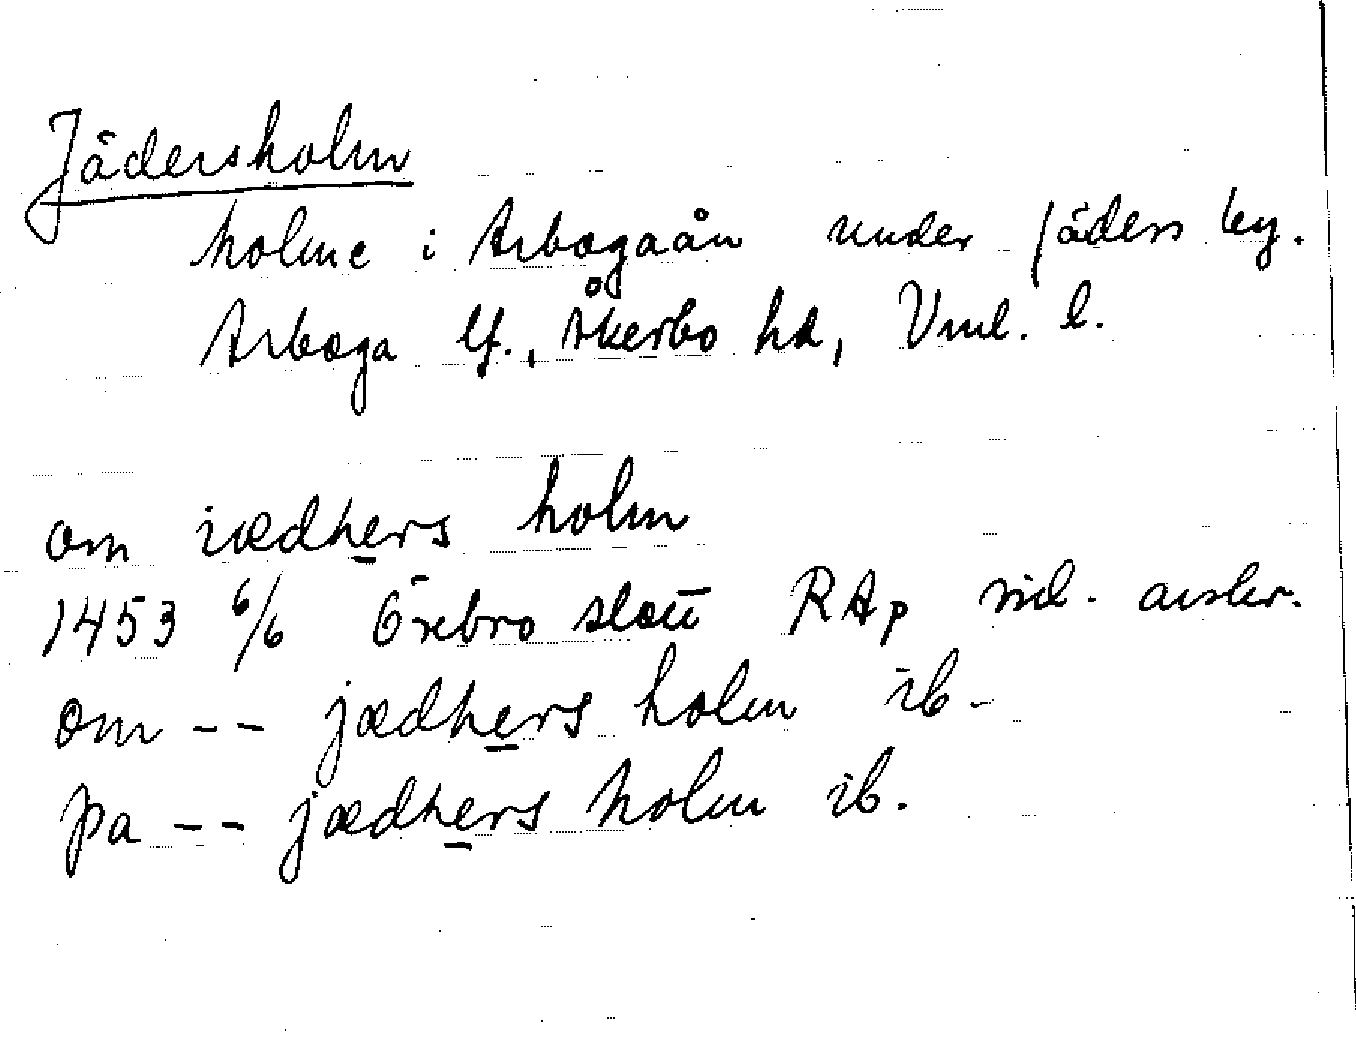 Jädersholm
holme i Arbogaån under Jäders by.
Arboga lf., Åkerbo hd, Vml. l.
om iædhers holm
1453 6/6 Örebro slott RAp vid. avskr.
om -- jædhers holm ib.
pa -- jædhers holm ib.